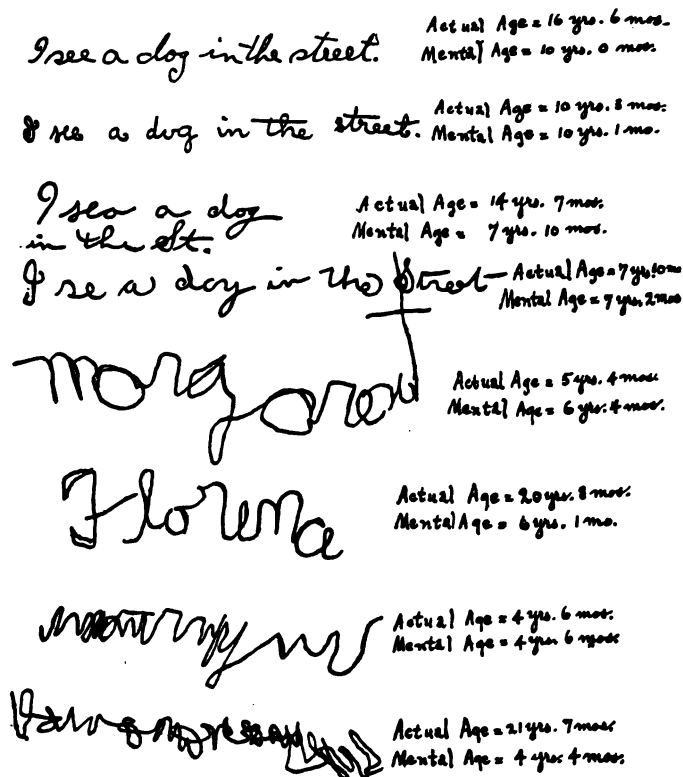 I see a dog in the street.
Actual Age = 16 yrs. 6 mos.
Mental Age = 10 yrs. 0 mos.
I see a dog in the street.
Actual Age = 10 yrs. 8 mos.
Mental Age = 10 yrs. 1 mo.
I see a dog
in the St.
Actual Age = 14 yrs. 7 mos.
Mental Age = 7 yrs. 10 mos.
I se a dog in the Street
Actual Age = 7 yrs. 10 mo
Mental Age = 7 yrs. 2 mos
Margaret
Actual Age = 5 yrs. 4 mos.
Mental Age = 6 yrs. 4 mos.
Florena
Actual Age = 20 yrs. 8 mos.
Mental Age = 6 yrs. 1 mo.
Actual Age = 4 yrs. 6 mos.
Mental Age = 4 yrs. 6 mos
Actual Age = 21 yrs. 7 mos.
Mental Age = 4 yrs. 4 mos.